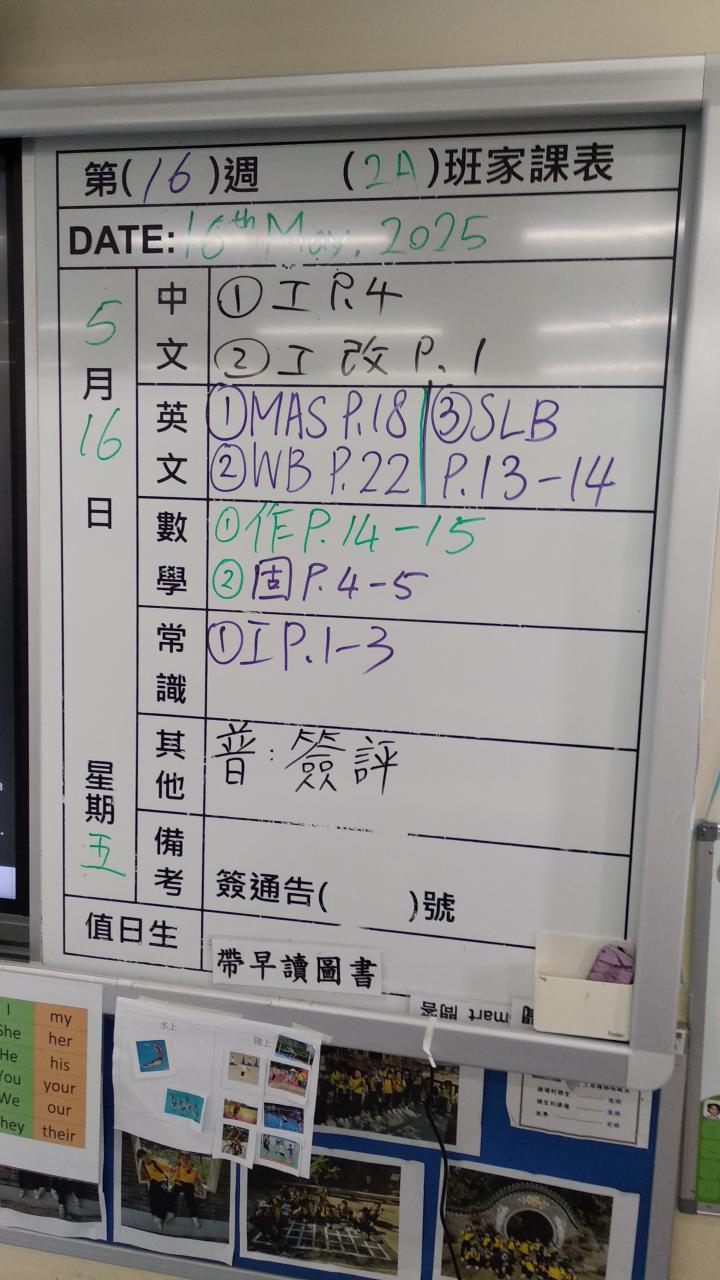 第(16)週 (2A)班家課表
DATE: 16th May, 2025
5月16日 星期五
中文
①工 P.4
②工改 P.1
英文
①MAS P.18
②WB P.22
③SLB
P.13-14
數學
①作P.14-15
②固P.4-5
常識
①工P.1-3
其他
普:簽評
備考
簽通告( )號
值日生
帶早讀圖書
mart 問答
I my
She her
He his
You your
We our
They their
水上
陸上